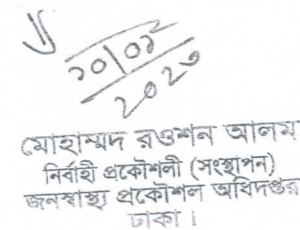 ২০২৩
মোহাম্মদ রওশন আলম
নির্বাহী প্রকৌশলী (সংস্থাপন)
জনস্বাস্থ্য প্রকৌশল অধিদপ্তর
ঢাকা।